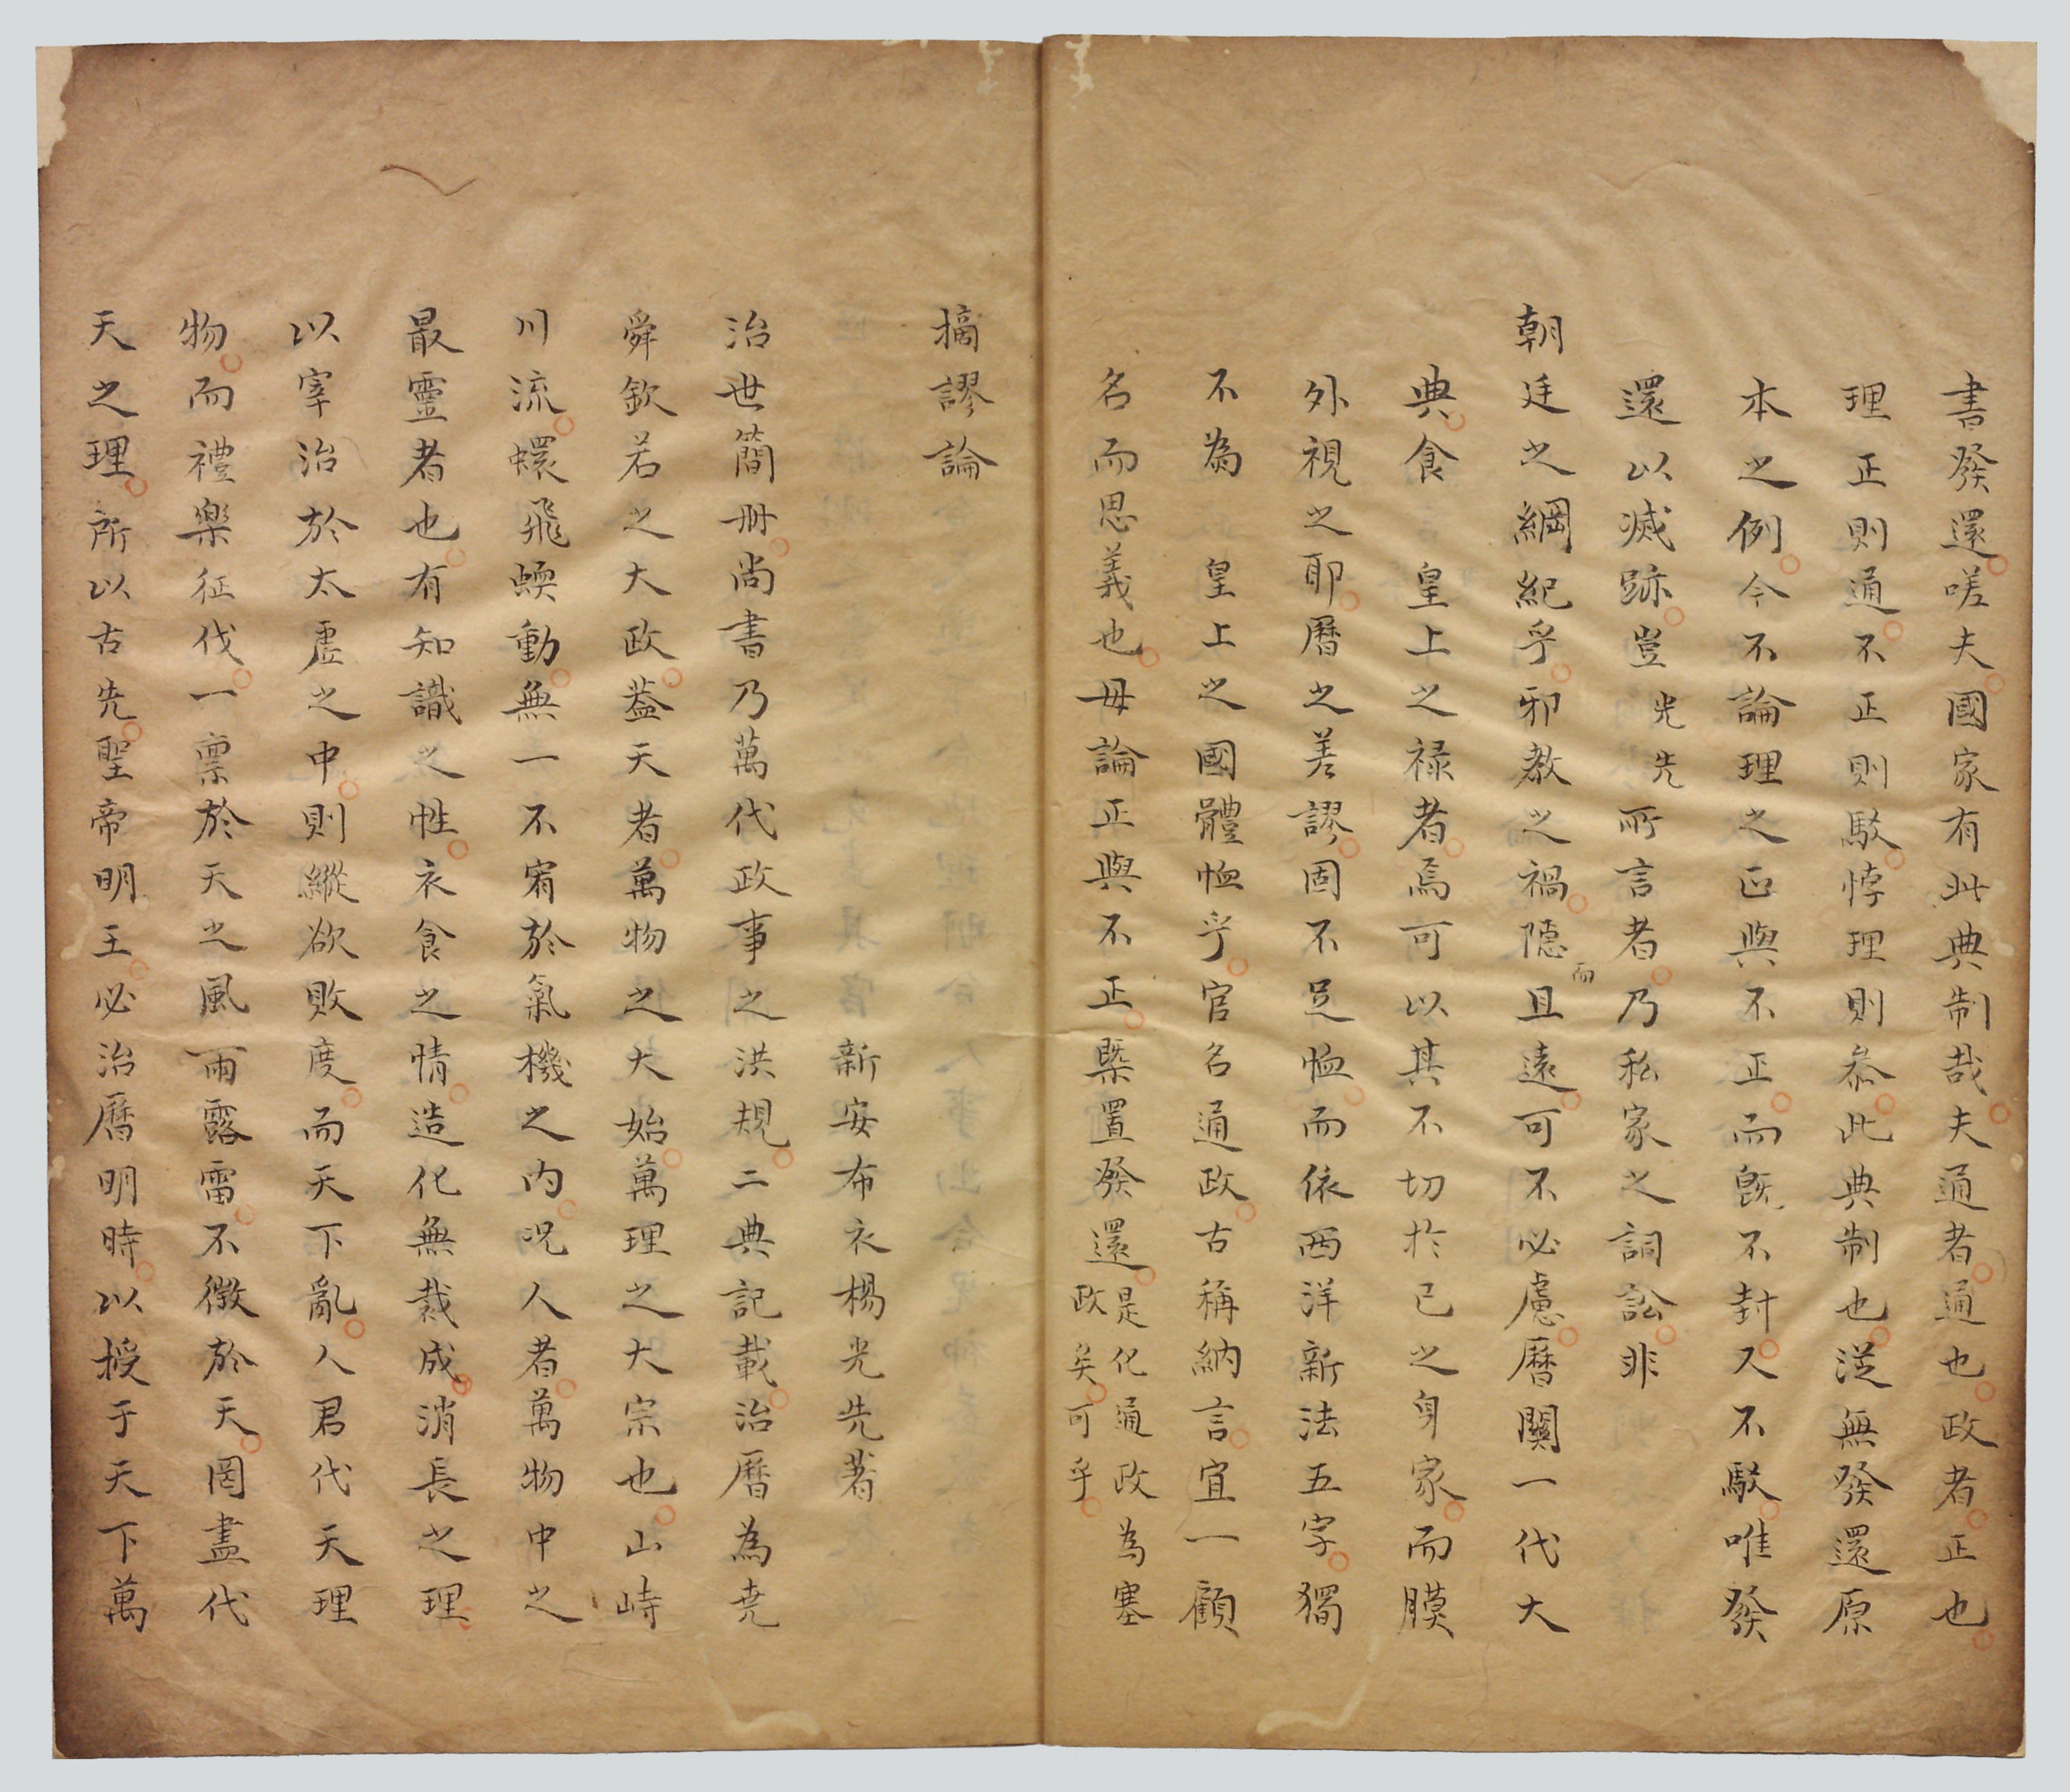 書發還嗟夫國家有此典制哉夫通者通也政者正也
理正則通不正則駁悖理則叅此典制也從無發還原
本之例今不論理之正與不正而旣不封又不駁唯發
還以滅跡豈光先所言者乃私家之詞訟非
朝廷之綱紀乎邪教之禍隱而且遠可不必慮曆關一代大
典食 皇上之祿者焉可以其不切於己之身家而膜
外視之耶曆之差謬固不足恤而依西洋新法五字獨
不為 皇上之國體恤乎官名通政古稱納言宜一顧
名而思義也毋論正與不正槩置發還是化通政為塞
政矣可乎
摘謬論
新安布衣楊光先著
治世簡冊尚書乃萬代政事之洪規二典記載治曆為堯
舜欽若之大政葢天者萬物之大始萬理之大宗也山峙
川流蠉飛蝡動無一不宥於氣機之內况人者萬物中之
最靈者也有知識之性衣食之情造化無裁成消長之理
以宰治於太虛之中則縱欲敗度而天下亂人君代天理
物而禮樂征伐一禀於天之風雨露雷不徵於天罔盡代
天之理所以古先聖帝明王必治曆明時以授于天下萬